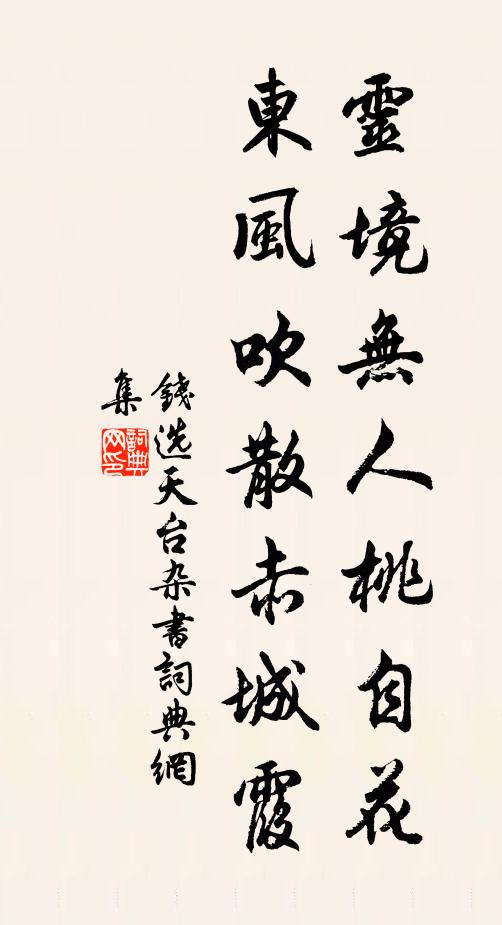 靈境無人桃自花
東風吹散赤城霞
錢选天台杂書詞典網
集
詞典网印